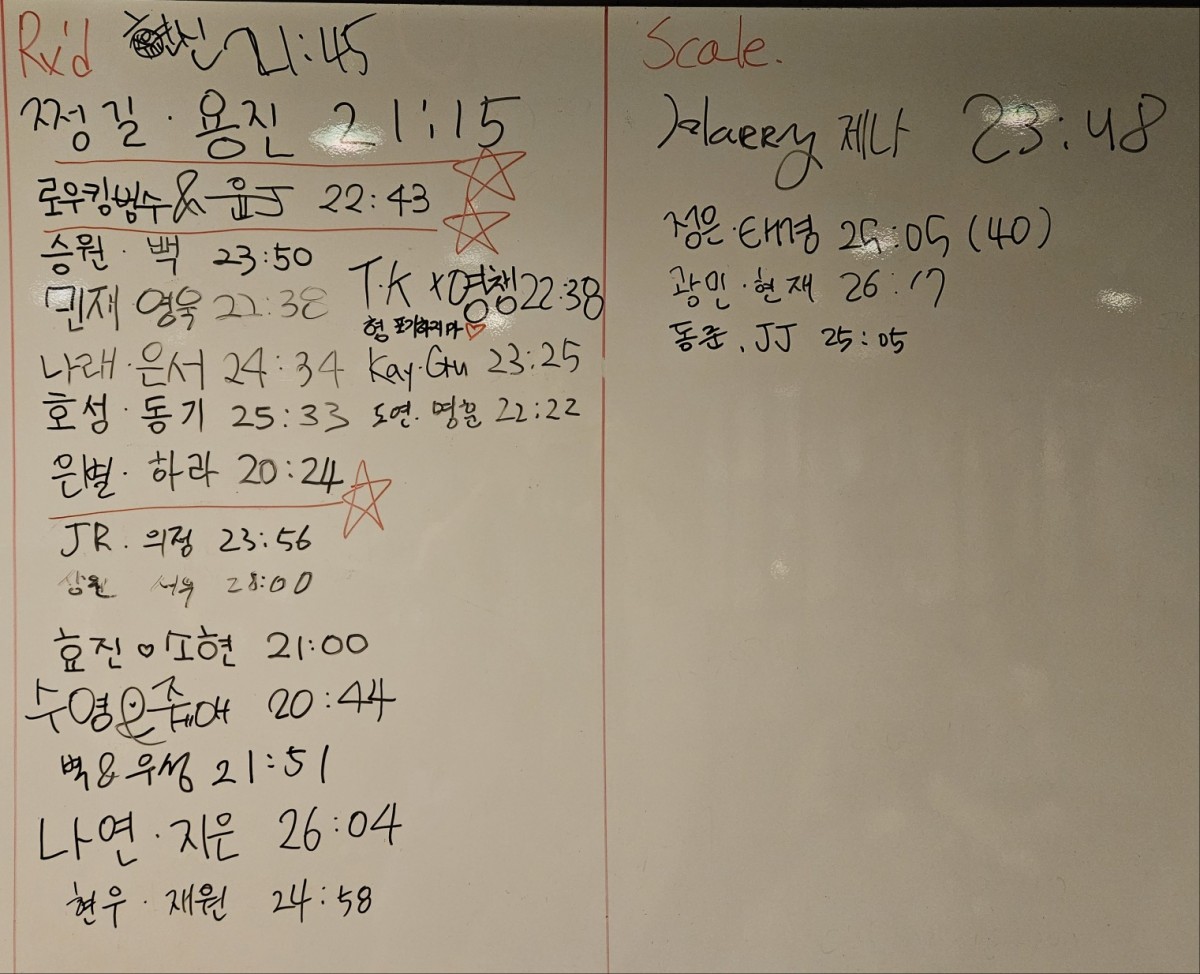 Rx'd 현신 21:45
쩡길 · 용진 21:15
로우킹범수 & 윤J 22:43
승원 · 백 23:50
민재 영욱 22:38
T.K x 영챙 22:38
형 포기하지마 ♡
나래 · 은서 24:34
Kay · Gu 23:25
호성 · 동기 25:33
도연 · 명훈 22:22
은별 · 하라 20:24
JR . 의정 23:56
상원 서우 28:00
효진 ♡ 소현 21:00
수영 & 20:44
벽 & 우성 21:51
나연 · 지은 26:04
현우 · 재원 24:58
Scale.
Harry 제나 23:48
정은 · 태경 25:05 (40)
광민 · 현재 26:17
동준 . JJ 25:05